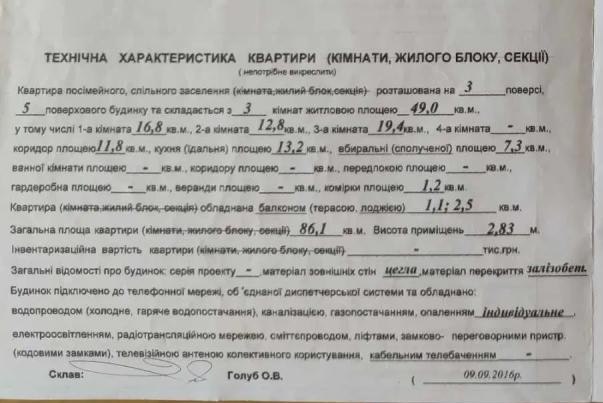 ТЕХНІЧНА ХАРАКТЕРИСТИКА КВАРТИРИ (КІМНАТИ, ЖИЛОГО БЛОКУ, СЕКЦІЇ)
( непотрібне викреслити)
Квартира посімейного, спільного заселення (кімната,жилий блок,секція) розташована на 3 поверсі,
5 поверхового будинку та складається з 3 кімнат житловою площею 49,0 кв.м.,
у тому числі 1-а кімната 16,8 кв.м., 2-а кімната 12,8 кв.м., 3-а кімната 19,4 кв.м., 4-а кімната - кв.м.,
коридор площею 11,8 кв.м., кухня (їдальня) площею 13,2 кв.м., вбиральні (сполученої) площею 7,3 кв.м.,
ванної кімнати площею - кв.м., коридору площею - кв.м., передпокою площею - кв.м.,
гардеробна площею - кв.м., веранди площею - кв.м., комірки площею 1,2 кв.м
Квартира (кімната,жилий блок, секція) обладнана балконом (терасою, лоджією) 1,1; 2,5 кв.м.
Загальна площа квартири (кімнати, жилого блоку, секції) 86,1 кв.м. Висота приміщень 2,83 м.
Інвентаризаційна вартість квартири (кімнати, жилого блоку, секції) - тис.грн.
Загальні відомості про будинок: серія проекту - матеріал зовнішніх стін цегла ,матеріал перекриття залізобет.
Будинок підключено до телефонної мережі, об 'єднаної диспетчерської системи та обладнано:
водопроводом (холодне, гаряче водопостачання), каналізацією, газопостачанням, опаленням індивідуальне ,
електроосвітленням, радіотрансляційною мережею, сміттєпроводом, ліфтами, замково- переговорними пристр.
(кодовими замками), телевізійною антеною колективного користування, кабельним телебаченням - .
Склав: Голуб О.В. ( 09.09.2016р. )